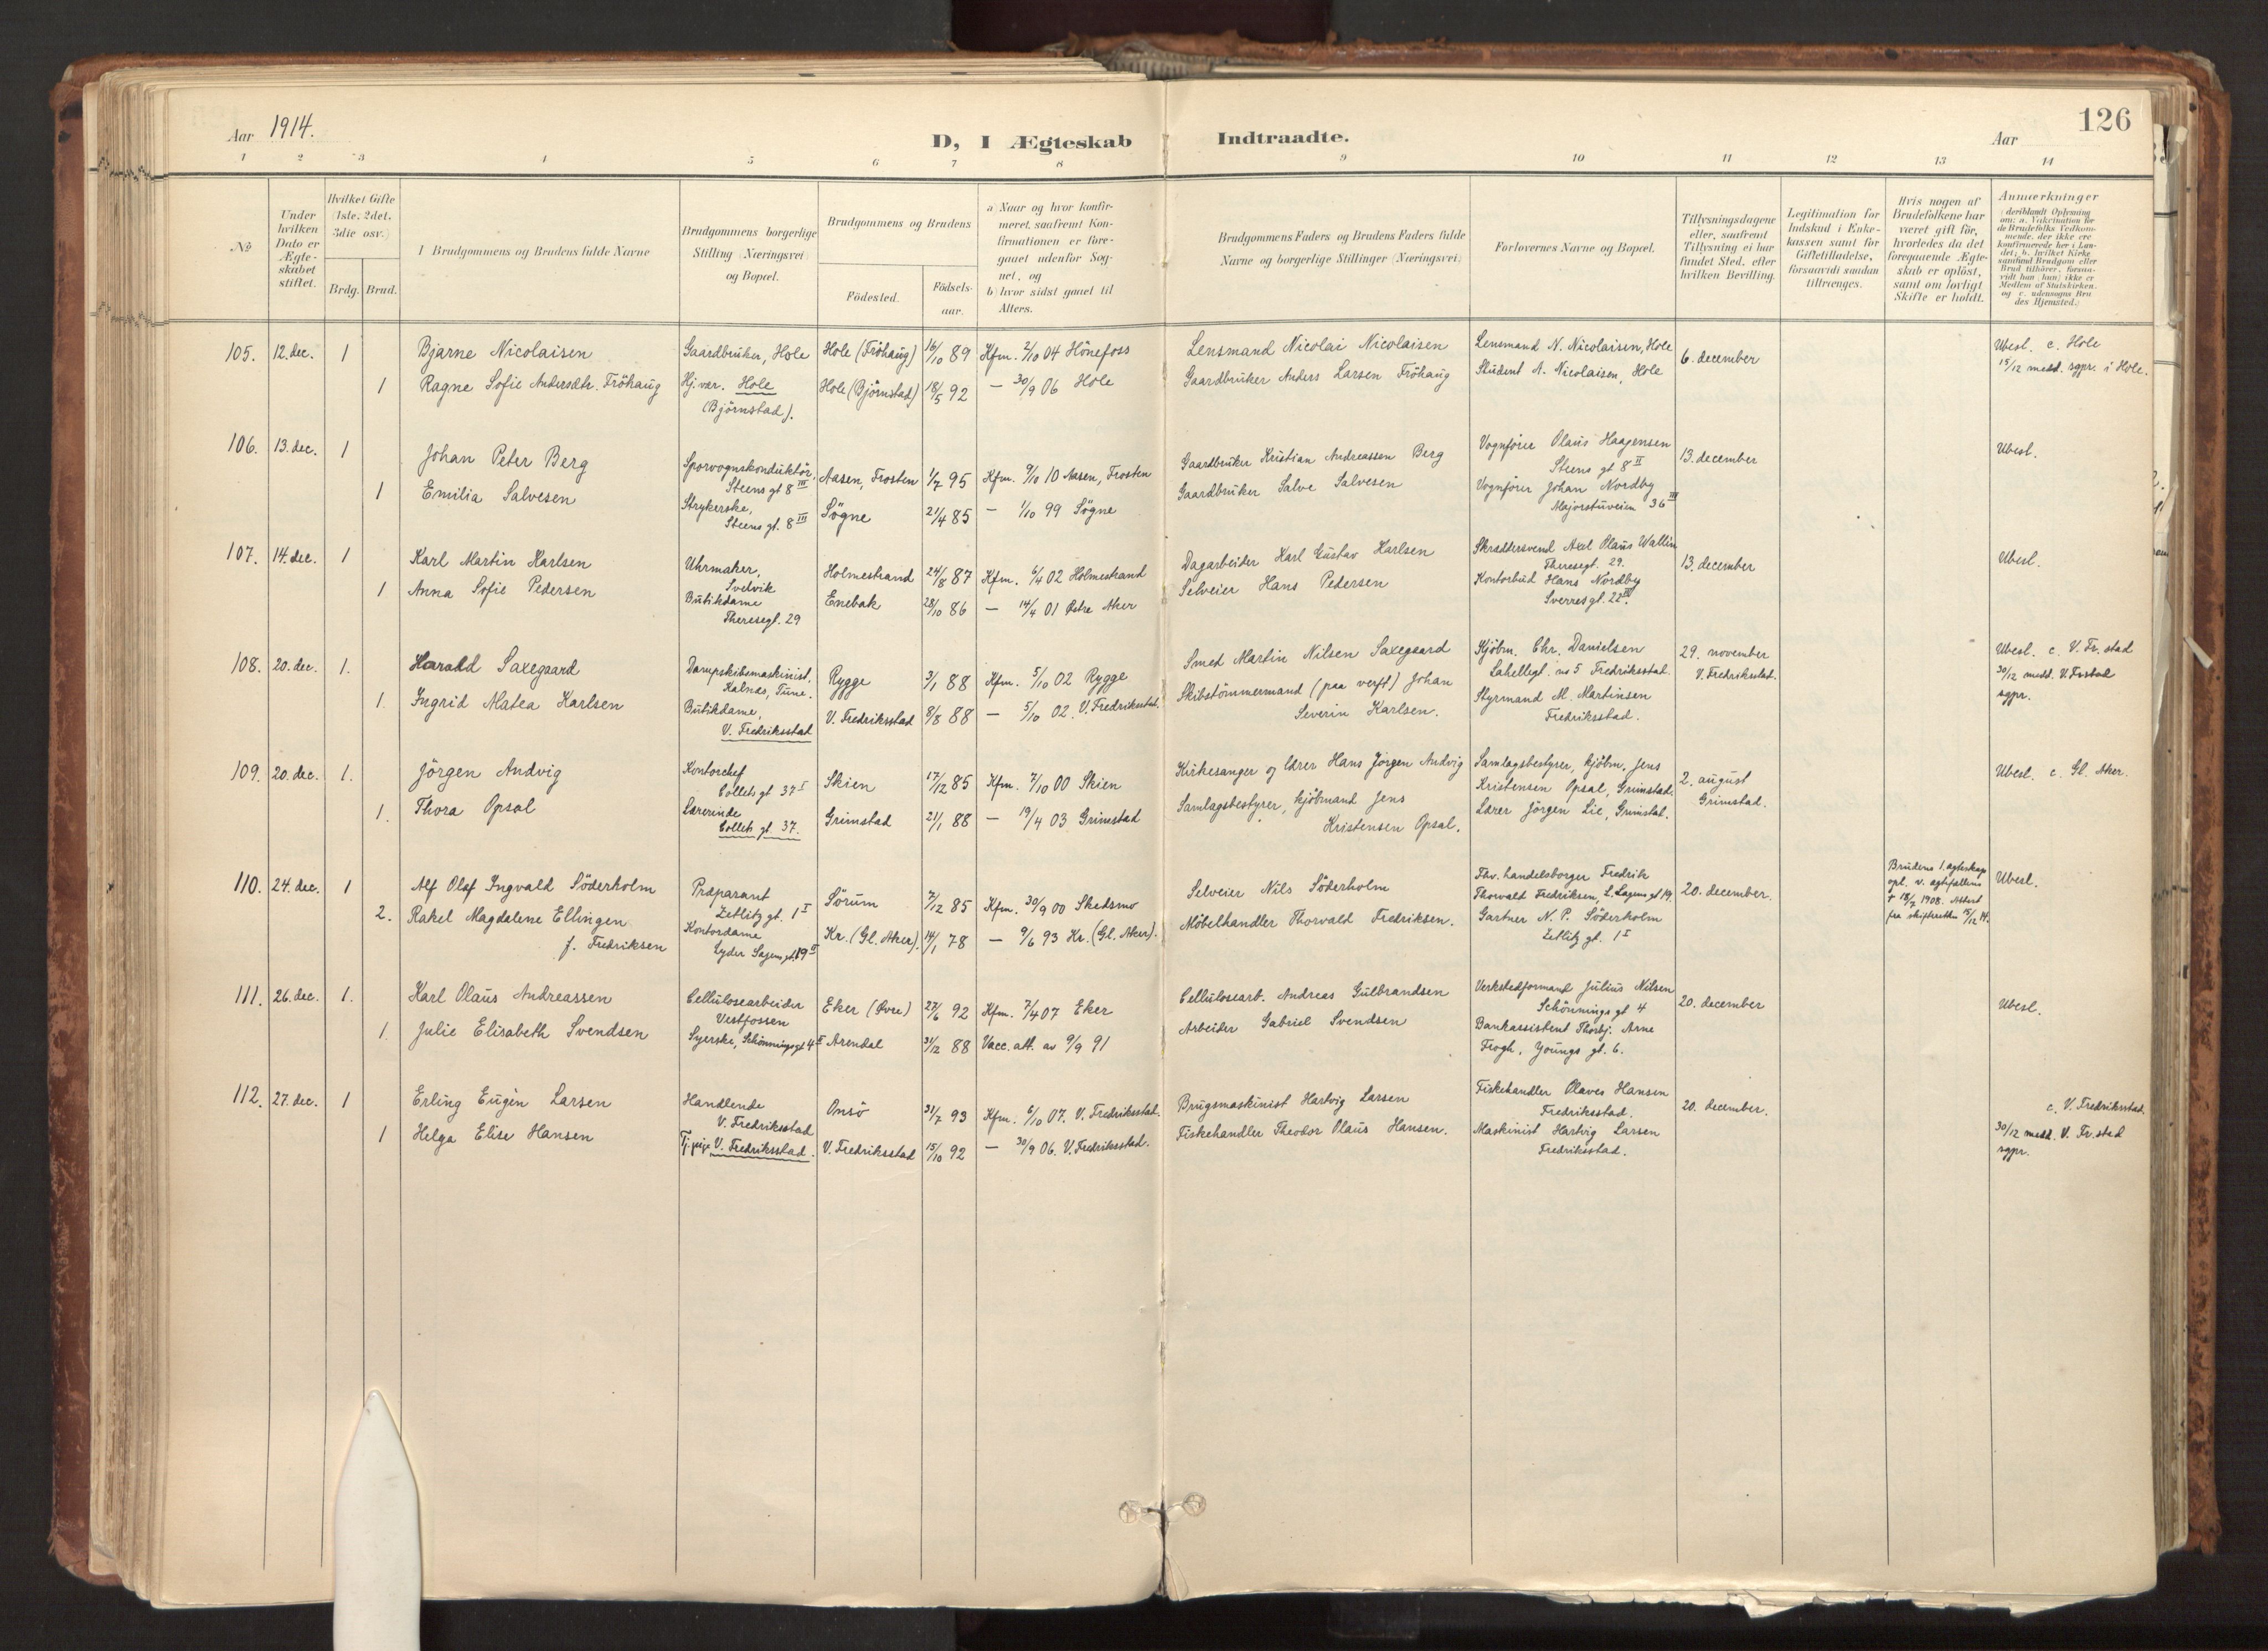 126
Aar 1914.
D, I Ægteskab Indtraadte.
Aar
1 2 3 4 5 6 7 8 9 10 11 12 13 14
No
Under hvilken Dato er Ægteskabet stiftet.
Hvilket Gifte (1ste, 2det, 3die osv.)
Brdg. Brud.
Brudgommens og Brudens fulde Navne
Brudgommens borgerlige Stilling (Næringsvei) og Bopæl.
Brudgommens og Brudens
Födested.
Födselsaar.
a) Naar og hvor konfirmeret, saafremt Konfirmationen er foregaaet udenfor Sognet, og
b) hvor sidst gaaet til Alters.
Brudgommens Faders og Brudens Faders fulde Navne og borgerlige Stillinger (Næringsvei)
Forlovernes Navne og Bopæl.
Tillysningsdagene eller, saafremt Tillysning ei har fundet Sted, efter hvilken Bevilling.
Legitimation for Indskud i Enkekassen samt for Giftetilladelse, forsaavidt saadan tiltrænges.
Hvis nogen af Brudefolkene har været gift för, hvorledes da det foregaaende Ægteskab er oplöst, samt om lovligt Skifte er holdt.
Anmærkninger (deriblandt Oplysning om: a. Vakcination for de Brudefolks Vedkommende, der ikke ere konfirmerede her i Landet; b. hvilket Kirkesamfund Brudgom eller Brud tilhörer, forsaavidt han (hun) ikke er Medlem af Statskirken, og c. udensogns Brudes Hjemsted.)
105. 12. dec. 1 Bjarne Nicolaisen Gaardbruker, Hole Hole (Fröhaug) 16/10 89 Kfm. 2/10 04 Hönefoss Lensmand Nicolai Nicolaisen Lensmand N. Nicolaisen, Hole 6. december Ubesl. c. Hole
1 Ragne Sofie Andersdtr. Fröhaug Hj.vær. Hole Hole (Björnstad) 18/5 92 — 30/9 06 Hole Gaardbruker Anders Larsen Fröhaug Student A. Nicolaisen, Hole 15/12 medd. sgpr. i Hole.
(Björnstad).
106. 13. dec. 1 Johan Peter Berg Sporvognskonduktör, Aasen, Frosten 1/7 95 Kfm. 9/10 10 Aasen, Frosten Gaardbruker Kristian Andreassen Berg Vognförer Olaus Haagensen 13. december Ubesl.
Steens gt 8 III Steens gt 8 II
1 Emilia Salvesen Strykerske, Sögne 21/4 85 — 1/10 99 Sögne Gaardbruker Salve Salvesen Vognförer Johan Nordby
Steens gt. 8 III Majorstuveien 36 III
107. 14. dec. 1 Karl Martin Karlsen Uhrmaker, Holmestrand 24/8 87 Kfm. 6/4 02 Holmestrand Dagarbeider Karl Gustav Karlsen Skræddersvend Axel Olaus Wallin 13. december Ubesl.
Svelvik Theresegt. 29.
1 Anna Sofie Pedersen Butikdame Enebak 28/10 86 — 14/4 01 Östre Aker Selveier Hans Pedersen Kontorbud Hans Nordby
Theresegt. 29 Sverres gt. 22
108. 20. dec. 1. Harald Saxegaard Dampskibsmaskinist, Rygge 3/1 88 Kfm. 5/10 02 Rygge Smed Martin Nilsen Saxegaard Kjöbm. Chr. Danielsen 29. november Ubesl. c. V. Fr.stad
Kalnæs, Tune. Lahellegt. no 5 Fredriksstad. V. Fredriksstad. 30/12 medd. V. Fr.stad
1. Ingrid Matea Karlsen Butikdame, V. Fredriksstad 8/8 88 — 5/10 02. V. Fredriksstad. Skibstömmermand (paa verft) Johan Styrmand M. Martinsen sgpr.
V. Fredriksstad Severin Karlsen. Fredriksstad.
109. 20. dec. 1. Jörgen Andvig Kontorchef Skien 17/12 85 Kfm. 7/10 00 Skien Kirkesanger og lærer Hans Jörgen Andvig Samlagsbestyrer, kjöbm. Jens 2. august Ubesl. c. Gl. Aker.
Collets gt 37 I Kristensen Opsal, Grimstad. Grimstad.
1. Thora Opsal Lærerinde Grimstad 21/1 88 — 19/4 03 Grimstad Samlagsbestyrer, kjöbmand Jens Lærer Jörgen Lie, Grimstad.
Collets gt. 37. Kristensen Opsal.
110. 24. dec. 1 Alf Olaf Ingvald Söderholm Præparant Sörum 7/12 85 Kfm. 30/9 00 Skedsmo Selveier Nils Söderholm Fhv. handelsborger Fredrik 20. december. Brudens 1. egteskap Ubesl.
Zetlitz gt. 1 I Thorvald Fredriksen, L. Sagens gt 19. opl. v. egtefællens
2. Rakel Magdalene Ellingen Kontordame Kr. (Gl. Aker). 14/1 78 — 9/6 93 Kr. (Gl. Aker). Möbelhandler Thorvald Fredriksen. Gartner N. P. Söderholm † 18/7 1908. Attest
f. Fredriksen Lyder Sagens gt. 19 II Zetlitz gt. 1 I fra skifteretten 15/12 14.
111. 26. dec. 1. Karl Olaus Andreassen Cellulosearbeider Eker (Övre) 27/6 92 Kfm. 7/4 07 Eker Cellulosearb. Andreas Gulbrandsen Verkstedformand Julius Nilsen 20. december Ubesl.
Vestfossen Schönnings gt 4
1. Julie Elisabeth Svendsen Syerske, Schönningsgt 4 II Arendal 31/12 88 Vacc. att. av 9/9 91 Arbeider Gabriel Svendsen Bankassistent Thorbj. Arne
Frogh, Youngs gt. 6.
112. 27. dec. 1 Erling Eugén Larsen Handlende Onsö 31/7 93 Kfm. 6/10 07. V. Fredriksstad. Brugsmaskinist Hartvig Larsen Fiskehandler Olaves Hansen 20. december. c. V. Fredriksstad.
V. Fredriksstad Fredriksstad. 30/12 medd. V. Fr.stad
1 Helga Elise Hansen Tj.pige, V. Fredriksstad. V. Fredriksstad 15/10 92 — 30/9 06. V. Fredriksstad. Fiskehandler Theodor Olaus Hansen. Maskinist Hartvig Larsen sgpr.
Fredriksstad.